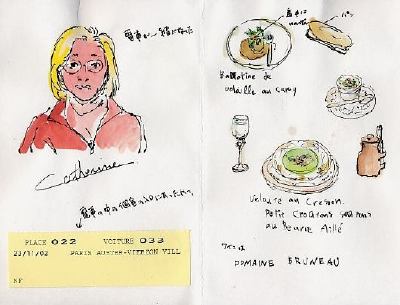 電車が一緒になった
Catherine
PLACE 022 VOITURE 033
23/11/02 PARIS AUSTER-VIERZON VILL
NF
パン
Ballotine de
volaille au curry
Velouté au Cresson.
Petit Croutons
au Beurre Aillé
ワインは
DOMAINE BRUNEAU